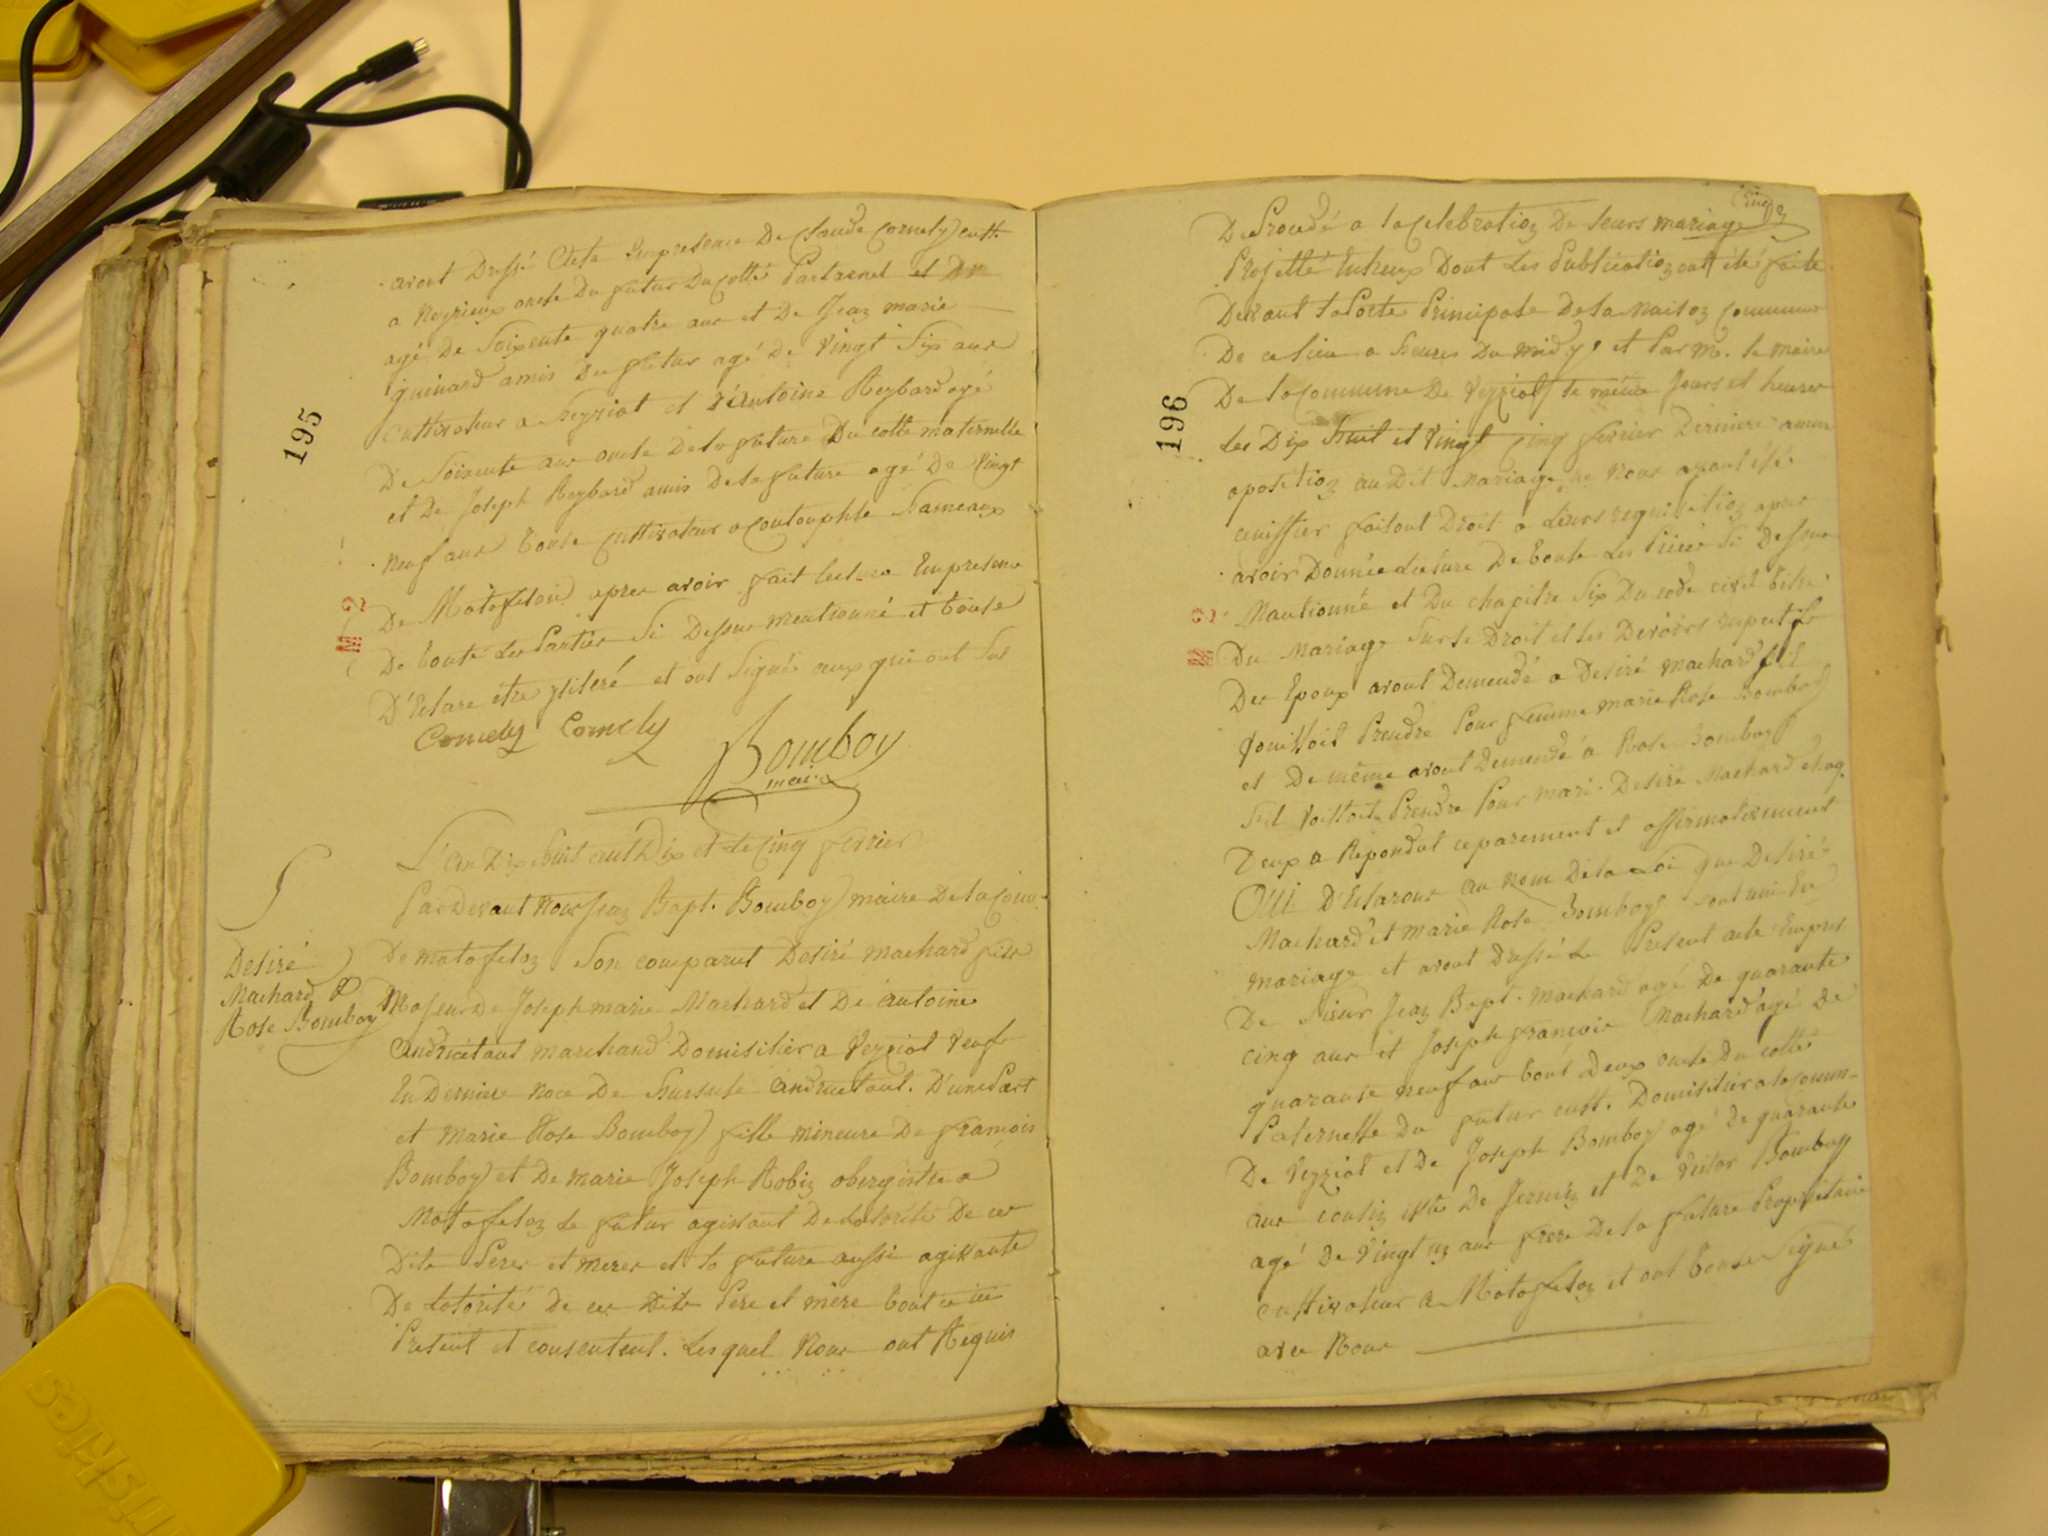 195
avont Dressé Acte Enpresence De Claude Cornely cult.
a Neyrieux oncle Du futur Du Cotté Partaenel et De
agé De Soixente quatre ans et De Jean marie
guinard amis Du futur agé De Vingt Six ans
Cultivateur a Veyziat et d'Antoine Reybard agé
De Soixente ans oncle De la future Du cotté maternelle
et De Joseph Reybard amis De la future agé De Vingt
neuf ans toute Cultivateur a Coutouphle hameaux
De Matafelon apres avoir fait lecture Enpresence
De toute Les Parties Si Dessus mentionné et toute
D'Eclare etre ylitéré et ont Signée ceux qui ont Sus
Cornely Cornely
Bomboy
maire
Desiré
Machard &
Rose Bomboy
L'an Dix huit cent Dix et Le Cinq fevrier
Par Devant Nous Jean Bapt. Bomboy maire De la Com.
De matafelon Son comparut Desiré machard fils
Majeur De Joseph marie Machard et De antoine
andruetant marchand Domisilier a Veyziat Veuf
En Derniere noce De hursule andruetant. D'une Part
et Marie Rose Bomboy fille mineure De François
Bomboy et De marie Joseph Robin obergistre a
Matafelon Le futur agissant De Lotorité De ces
Dits Peres et meres et la future aussi agissante
De Lotorité De ces Dits Pere et mere tout ici
Present et consentent. Lesquel Nous ont Requis
196
De Procedé a la Celebration De leurs mariage
Projetté Entreux Dont Les Publication ont été faite
Devant La Porte Principale De la maison Commune
De ce lieu a heures Du midy et Par M. le maire
De la commune De Veyziat le même Jours et heures
Les Dix huit et Vingt Cinq fevrier Derniere aucune
oposition au Dit mariage ne Nous ayant été
Mantionné et Du chapitre Six Du code civil titre
Du Mariage Sur le Droit et les Devoirs respectif
Des Epoux avont Demendé a Desiré machard fils
Prendre Pour femme marie Rose Bomboy
et De même avont Demendé a Rose Bomboy
Prendre Pour mari Desiré Machard chaq.
Deux a Repondut ceparement et affirmativement
Oui D'Eclarons au nom De la Loi que Desiré
Machard et marie Rose Bomboy sont unis En
mariage et avont Dressé Le Present acte Enpres
De Sieur Jean Bapt. machard agé De quarante
cinq ans et Joseph françois Machard agé De
quarante neuf ans tout Deux oncle Du cotté
Paternelle Du futur cult. Domisilier a la comm-
De Veyziat et De Joseph Bomboy agé De quarante
agé De Vingt un ans frere De la future Propriétaire
cultivateur a Matafelon et ont tous Signés
avec Nous